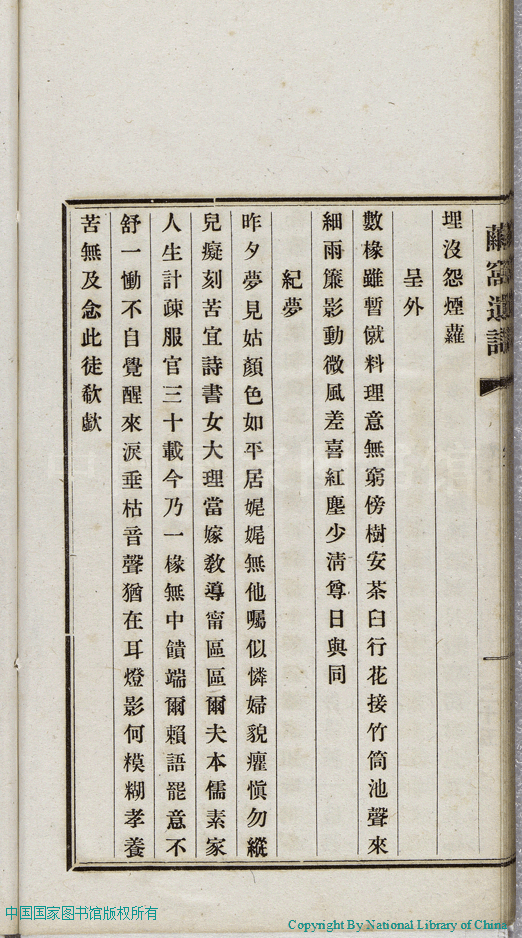 埋沒怨煙蘿
呈外
數椽雖暫僦料理意無窮傍樹安茶臼行花接竹筒池聲來
細雨簾影動微風差喜紅塵少淸尊日與同
紀夢
昨夕夢見姑顏色如平居娓娓無他囑似憐婦貌癯愼勿縱
兒癡刻苦宜詩書女大理當嫁敎導甯區區爾夫本儒素家
人生計疎服官三十載今乃一椽無中饋端爾賴語罷意不
舒一慟不自覺醒來淚垂枯音聲猶在耳燈影何模糊孝養
苦無及念此徒欷歔
中国国家图书馆版权所有
Copyright By National Library of China